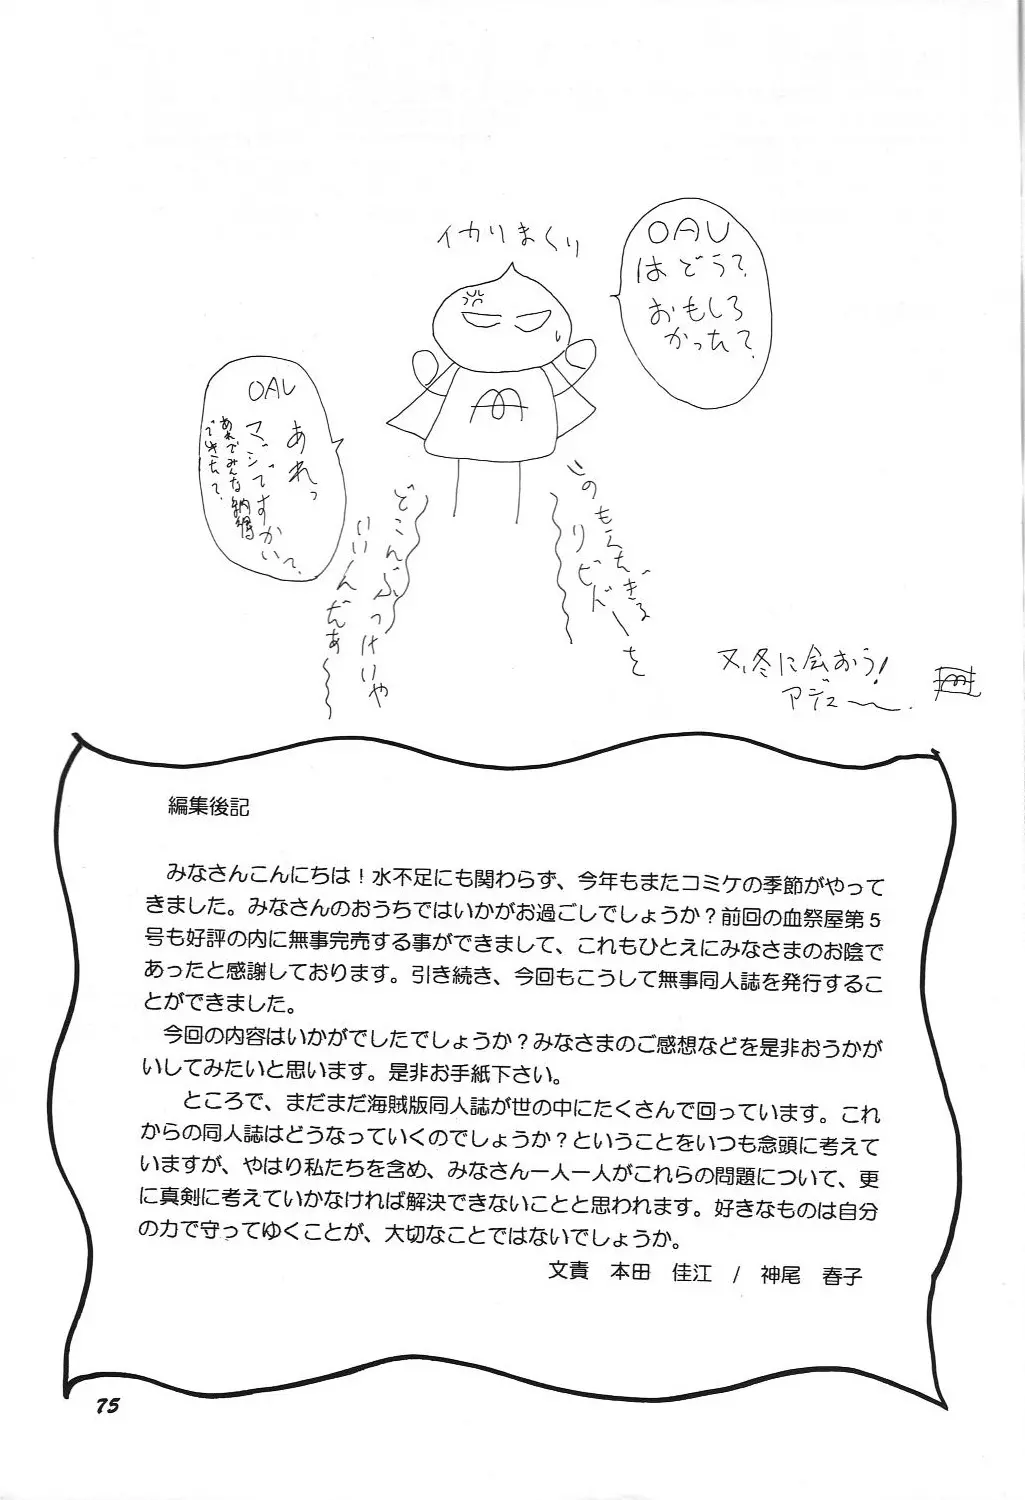 イカりまくり
OAU
はどう?
おもしろ
かった?
OAU
あれっ
マジですかい?
あれでみんな納得
できたって?
このもえたぎる
リビドーを
どこんぶっけいや
いいんだぁ〜
又、冬に会おう!
アデュー.
編集後記
みなさんこんにちは！水不足にも関わらず、今年もまたコミケの季節がやって
きました。みなさんのおうちではいかがお過ごしでしょうか？前回の血祭屋第５
号も好評の内に無事完売する事ができまして、これもひとえにみなさまのお陰で
あったと感謝しております。引き続き、今回もこうして無事同人誌を発行するこ
とができました。
今回の内容はいかがでしたでしょうか？みなさまのご感想などを是非おうかが
いしてみたいと思います。是非お手紙下さい。
ところで、まだまだ海賊版同人誌が世の中にたくさんで回っています。これ
からの同人誌はどうなっていくのでしょうか？ということをいつも念頭に考えて
いますが、やはり私たちを含め、みなさん一人一人がこれらの問題について、更
に真剣に考えていかなければ解決できないことと思われます。好きなものは自分
の力で守ってゆくことが、大切なことではないでしょうか。
文責　本田　佳江　/　神尾　春子
75